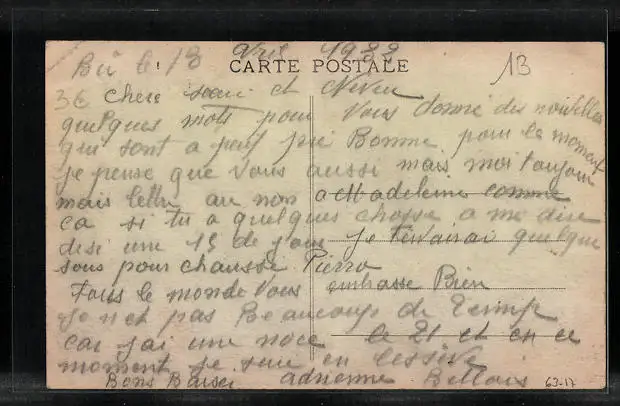 Bû 6! 18 Avril 1922
CARTE POSTALE
13
Chere sœur et Neveu
quelques mots pour vous donné des nouvelles
qui sont a peut pré Bonne pour le moment
je pense que vous aussi mais moi toujour
mais lettre au non a Madeleine comme
ca si tu a quelques chosse a me dire
disi une 15 de jour je quelque
sous pour chausse Pierro
Tous le monde vous embrasse Bien
Je n et pas Beaucoup de temp
car jai une noce le 21 et en ce
moment je suie en lessive
Bons Baiser adrienne
63-17